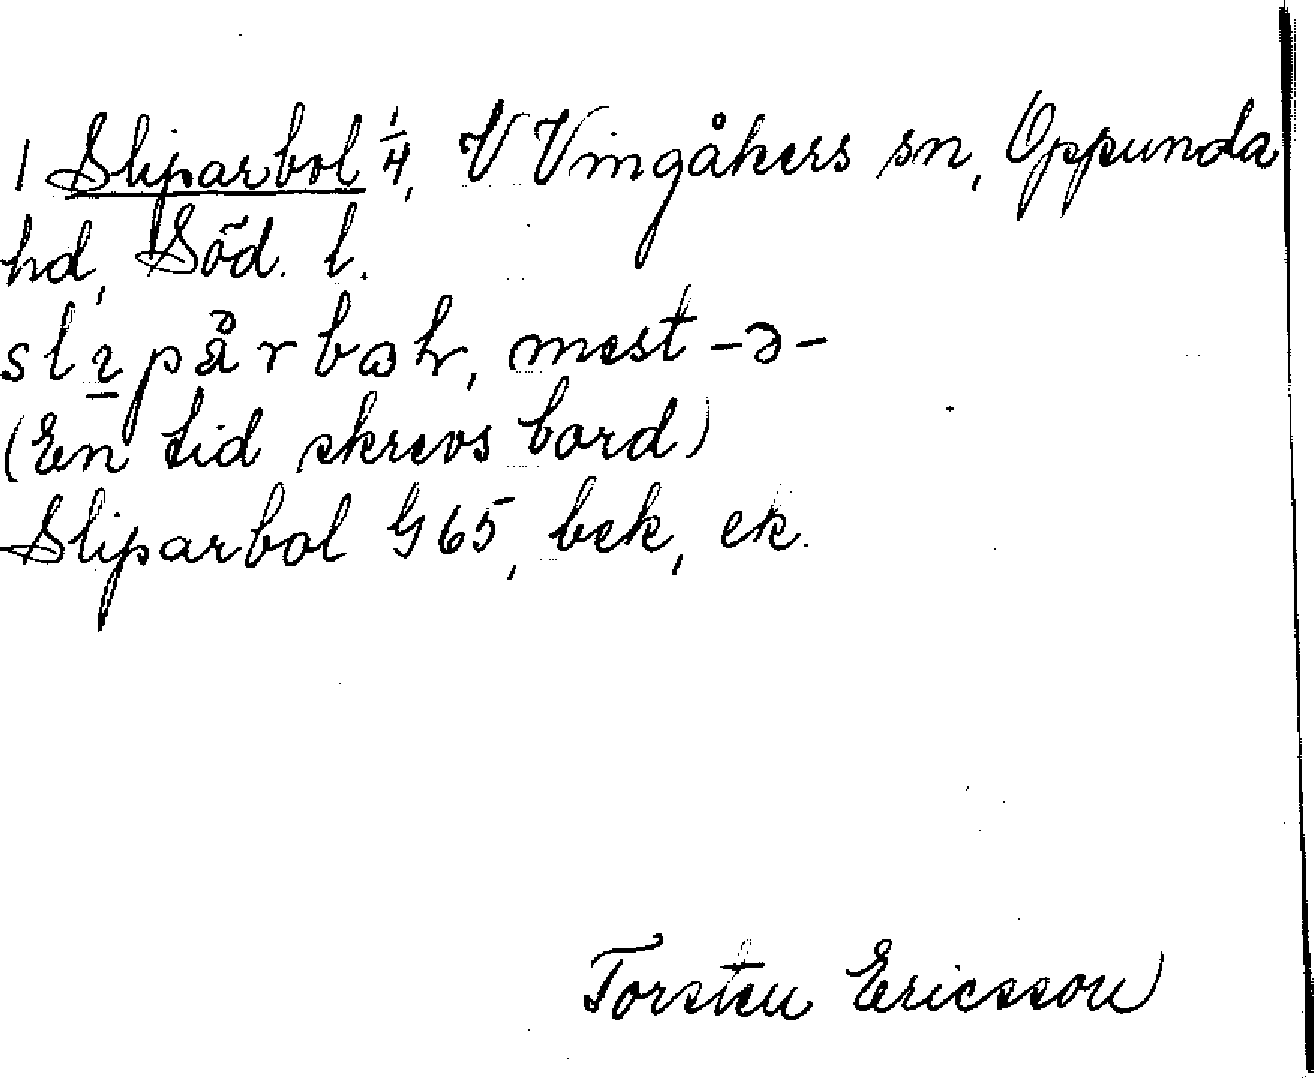 1 Sliparbol 1/4, V Vingåkers sn, Oppunda
hd, Söd. l.
mest -ə-
(En tid skrevs bord)
Sliparbol G 65, bek, ek.
Torsten Ericsson